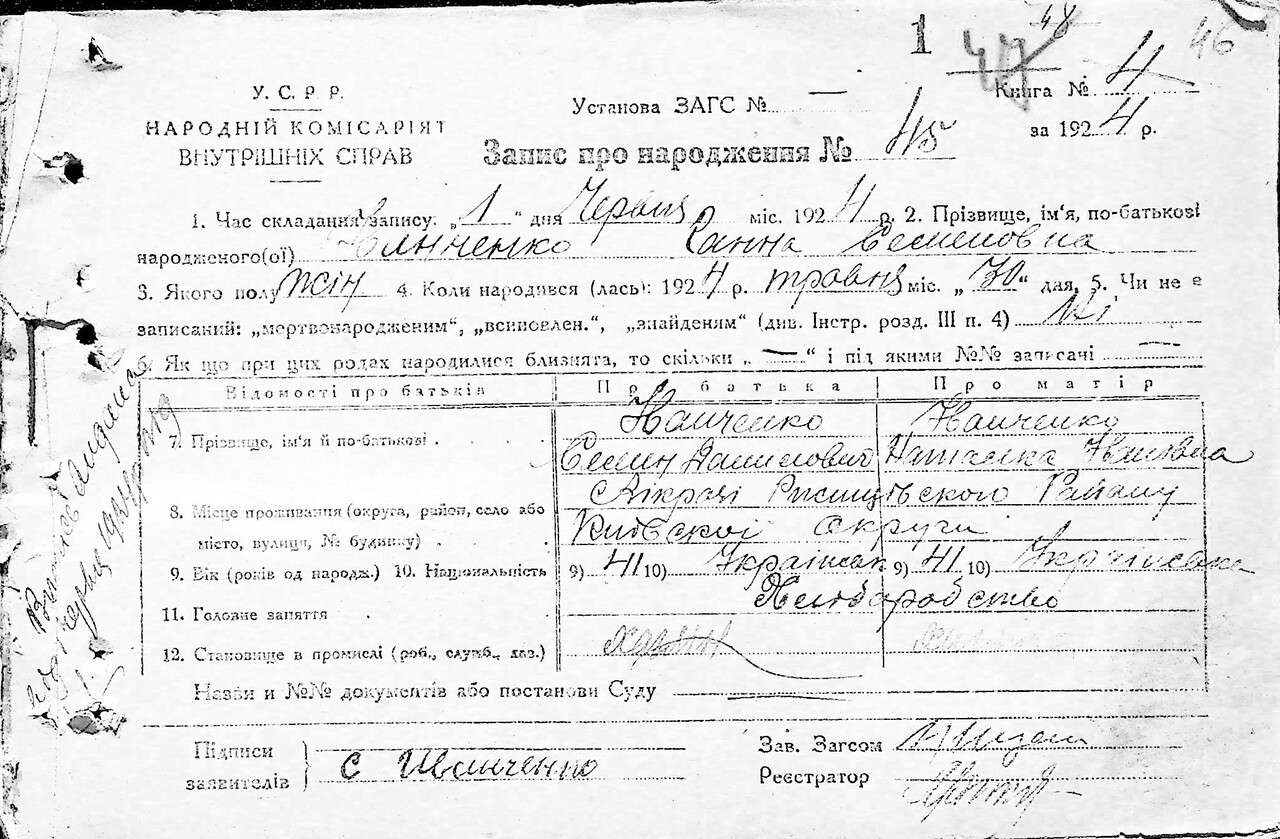 1 47 48 46
У. С. Р. Р.
НАРОДНІЙ КОМІСАРІЯТ
ВНУТРІШНІХ СПРАВ
Установа ЗАГС № —
Книга № 4
за 1924 р.
Запис про народження № 45
1. Час складання запису: „1“ дня Червня міс. 1924 р. 2. Прізвище, ім'я, по-батькові
народженого(ої) Ганна Семеновна
3. Якого полу жін 4. Коли народився (лась): 1924 р. травня міс. „30“ дня, 5. Чи не є
записаний: „мертвонародженим“, „всиновлен.“, „знайденям“ (див. Інстр. розд. III п. 4) Ні
6. Як що при цих родах народилися близнята, то скільки „—“ і під якими №№ записачі —
Відомості про батьків Про батька Про матір
7. Прізвище, ім'я й по-батькові Іванченко Іванченко
Семин Данилович Наталка Іванівна
8. Місце проживання (округа, район, село або
місто, вулиця, № будинку) с Ржищівського Району
Київської округи
9. Вік (років од народж.) 10. Національність 9) 41 10) Українськ 9) 41 10) Українська
11. Головне заняття Хліборобство
12. Становище в промислі (роб., служб., хаз.) хазяїн
Назви и №№ документів або постанови Суду —
Підписи
заявителів } С Иванченко
Зав. Загсом
Реєстратор